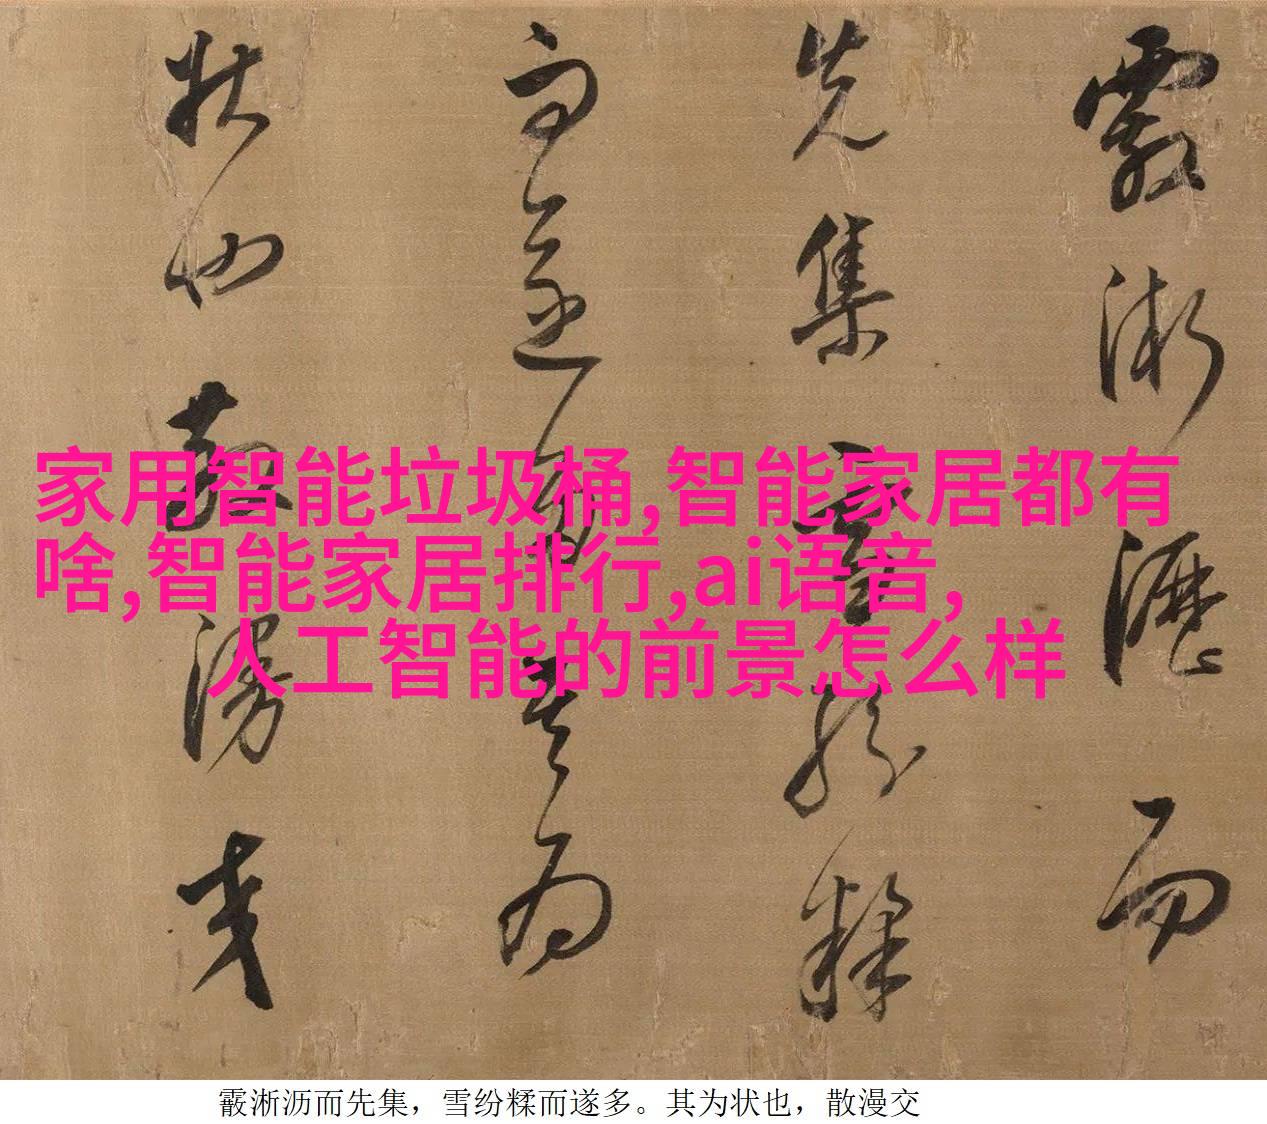 霰淅沥而
先集雪纷糅
而遂多其为
状也散漫交
家用智能垃圾桶,智能家居都有
啥,智能家居排行,ai语音,
人工智能的前景怎么样
霰淅沥而先集，雪纷糅而遂多。其为状也，散漫交